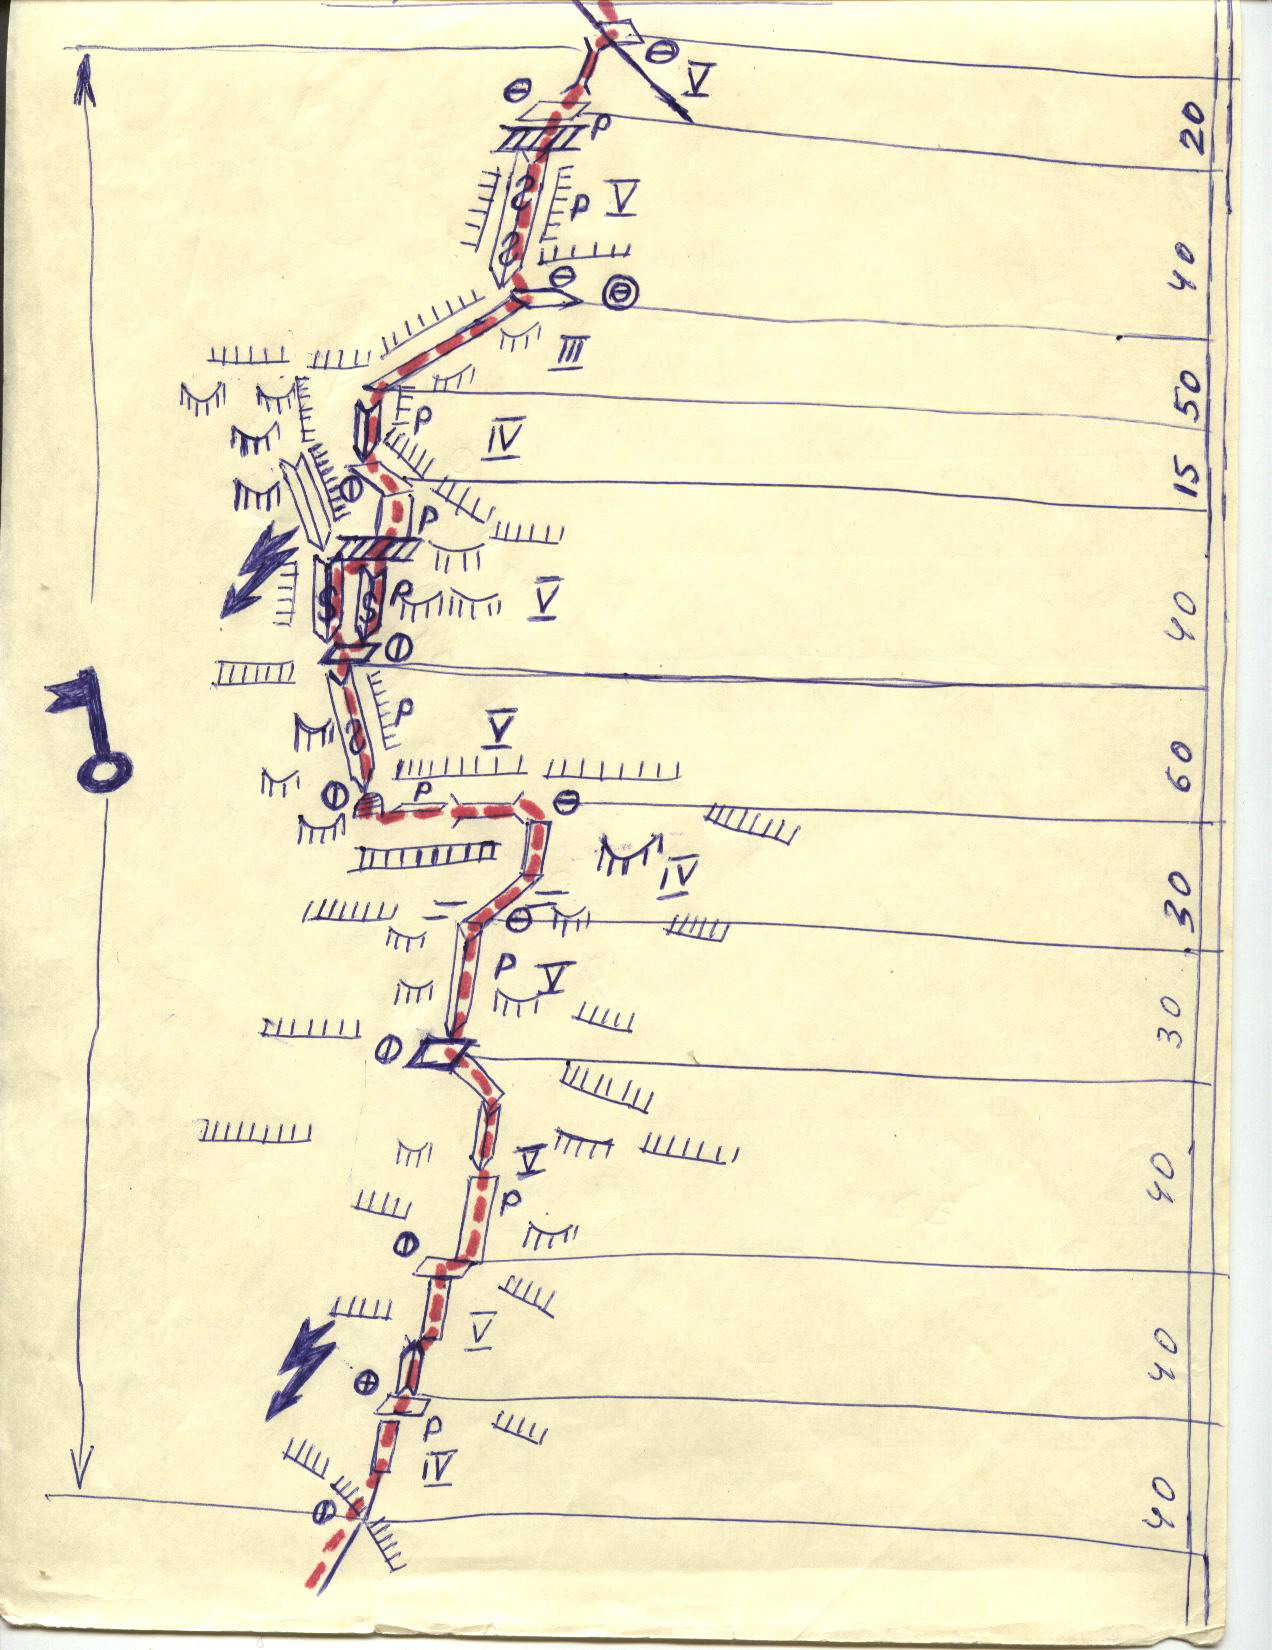 V
20
P
P V
40
III
50
P
IV
15
P
P
V
40
P
V
60
P
IV
30
P V
30
V
40
P
V
40
P
IV
40